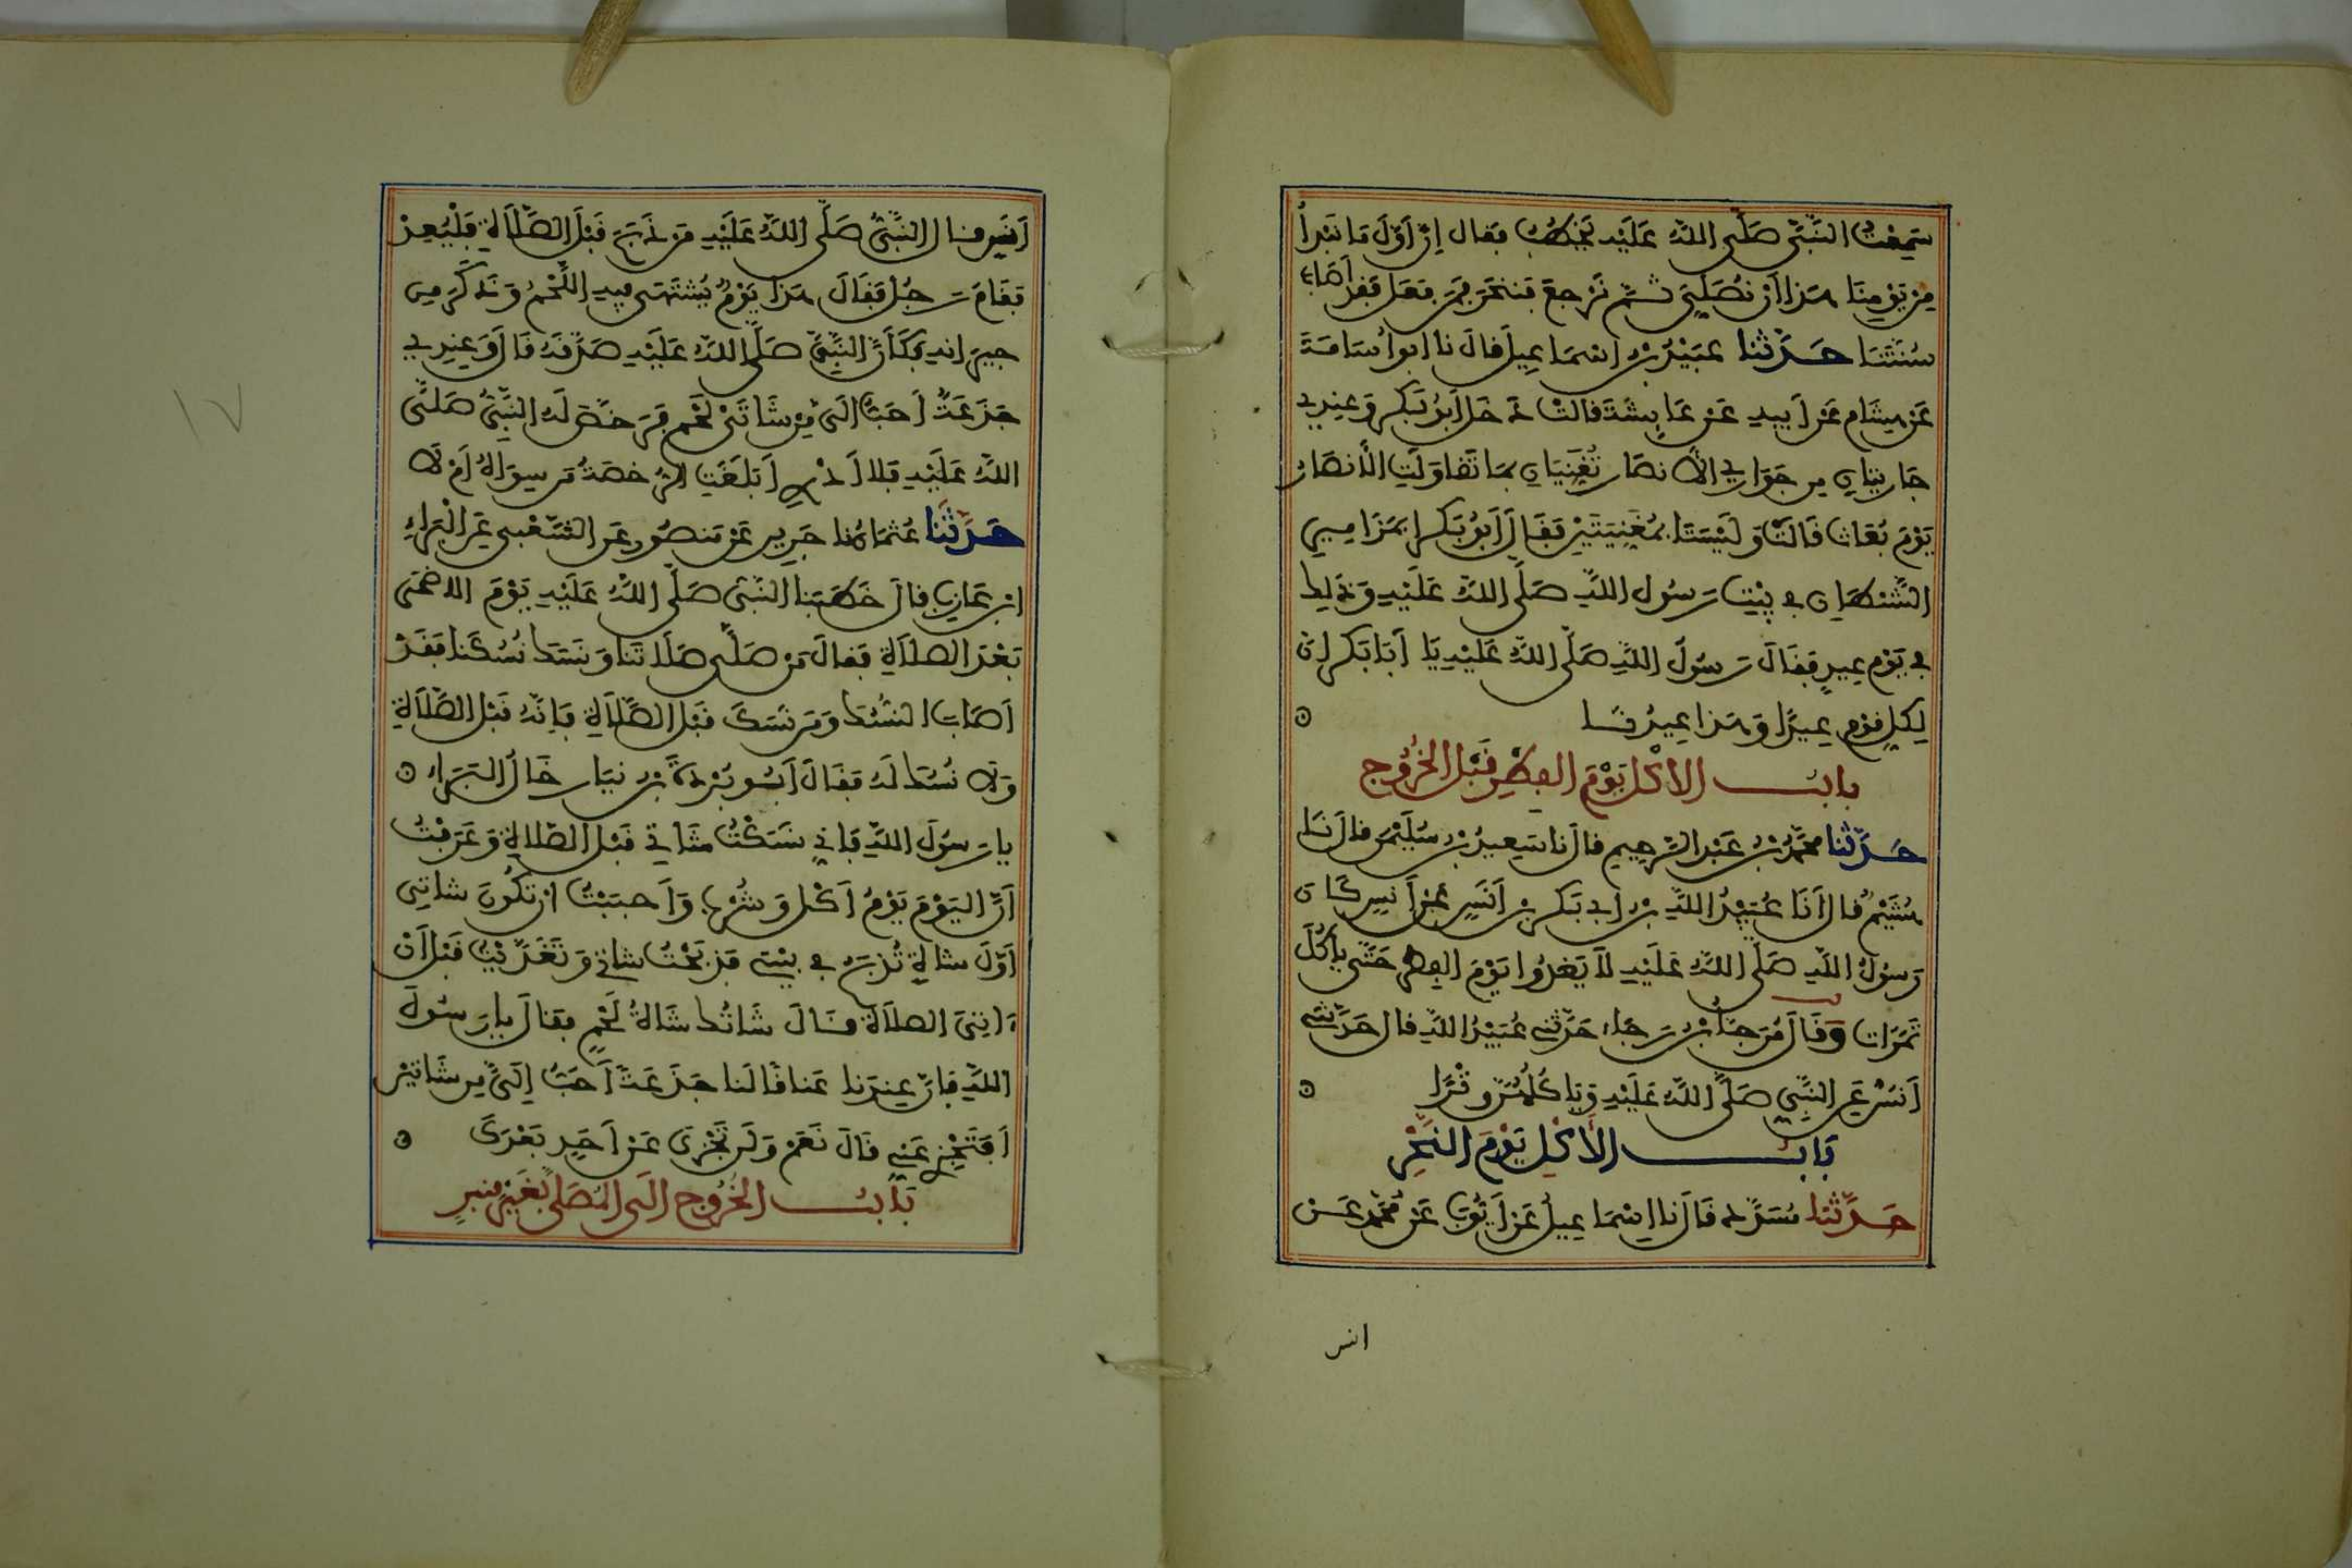 سَمِعْتُ النَّبِيَّ صَلَّى اللَّهُ عَلَيْهِ يَخْطُبُ فقال إنّ أوّلَ مَا نَبْدَأُ
مِن يَوْمِنَا هَذا أن نُصَلِّيَ ثُمّ نَرْجِعَ فَنَنْحَرَ فمَن فَعَلَ فَقَد أصَابَ
سُنَّتَنَا حَدَّثنا عُبَيْدُ بنُ اسْمَاعِيلَ قالَ نا ابوا أُسَامَةَ
عَن هِشَام عَن أَبِيهِ عَن عَايِشَةَ قالتْ دَخَلَ أَبُو بَكر وَعِندِي
جَارِيَتَانِ مِن جَوَارِي الأنصَارِ تُغَنِّيَانِ بمَا تَقاوَلَتِ الأنصَارُ
يَوْمَ بُعَاث قَالَتْ وَلَيْسَتَا بمُغَنِّيَتَيْنِ فَقَالَ أَبُو بَكر ا بمَزَامِيرِ
الشَّيْطَانِ في بَيْتِ رَسُول اللَّهِ صَلَّى اللَّهُ عَلَيْهِ وَذَلِك
في يَوْمِ عِيدٍ فَقَالَ رَسُولُ اللَّهِ صَلَّى اللَّهُ عَلَيْهِ يَا أَبَا بَكر إنّ
لِكلِّ قَوْمٍ عِيدًا وَهَذا عِيدُنَا
بابُ الأكْل يَوْمَ الفِطْرِ قَبْلَ الخُرُوج
حَدَّثنا محمّدُ بنُ عَبْد الرّحِيم قالَ نا سَعِيدُ بنُ سُلَيْمَن قالَ نَا
هُشَيْمٌ قالَ أنَا عُبَيْدُ اللَّهِ بنُ أبي بَكر بنِ أنَسٍ عَن أنَسٍ كَانَ
رَسُولُ اللَّهِ صَلَّى اللَّهُ عَلَيْهِ لاَ يَغدُوا يَوْمَ الفِطرِ حَتّى يأكُلَ
تَمَرَات وَقَالَ مُرَجَّاُ بنُ رَجَاء حَدَّثني عُبَيْدُ اللَّهِ قال حَدَّثني
أنَسٌ عَنِ النَّبِيِّ صَلَّى اللَّهُ عَلَيْهِ وَيَاكُلُهُنَّ وِتْرًا
بَابُ الأكْلِ يَوْمَ النَّحْرِ
حَدَّثنا مُسَدَّدٌ قَالَ نا إسْمَاعِيلُ عَن أَيُّوبَ عَن مُحَمَّد عَن
انس
أنَسٍ قال النَّبِيُّ صَلَّى اللَّهُ عَلَيْهِ مَن ذَبَحَ قَبْلَ الصَّلاَةِ فَلْيُعِدْ
فَقَامَ رَجُلٌ فَقَالَ هَذا يَوْمٌ يُشْتَهَى فِيهِ اللَّحْمُ وَذَكَرَ مِن
جِيرَانِهِ فَكَأنَّ النَّبِيَّ صَلَّى اللَّهُ عَلَيْهِ صَدَّقَهُ قَالَ وَعِندِي
جَذَعَةٌ أحَبُّ إلَيَّ مِن شَاتَيْ لَحْم فَرَخَّصَ لَهُ النَّبِيُّ صَلَّى
اللَّهُ عَلَيْهِ فلا أدْرِي أبَلَغَتِ الرُّخصَةُ مَن سِوَاهُ أمْ لَا
حَدَّثَنا عُثمَانُ نا جَرِير عَن مَنصُور عَنِ الشَّعْبِي عَنِ الْبَرَاءِ
ابن عَازِبٍ قالَ خَطَبَنا النَّبيّ صَلَّى اللَّهُ عَلَيْهِ يَوْمَ الاضحَى
بَعْدَ الصلاَةِ فقالَ مَن صَلَّى صَلاَتَنَا وَنَسَكَ نُسُكَنا فَقَدْ
أصَابَ النُّسُكَ وَمَن نَسَكَ قَبْلَ الصَّلاَةِ فَإنَّهُ قَبْلَ الصَّلاَةِ
وَلا نُسُكَ لَهُ فقَالَ أبُو بُرْدَةَ بنُ نيَارٍ خَالُ البَرَاءِ
يا رَسُولَ اللَّهِ فَإني نَسَكْتُ شَاتِي قَبْلَ الصَّلاةِ وَعَرَفْتُ
أنَّ اليَوْمَ يَوْمُ أكْل وَشُرْبٍ وَأحبَبْتُ أن تَكُونَ شاتِي
أوَّلَ شاةٍ تُذبَحُ في بيْتِي فذبَحْتُ شاتِي وَتَغَدَّيْتُ قَبْلَ أنْ
ءَاتِيَ الصلاَةَ قَالَ شَاتُكَ شَاةُ لَحْمٍ فقالَ يا رَسُولَ
اللَّهِ فَإنّ عِندَنا عَناقًا لَنا جَذَعَةً أحَبُّ إلَيَّ مِن شَاتَيْن
أفَتَجْزِي عَنِّي قَالَ نَعَمْ وَلَن تَجْزِيَ عَنْ أحَدٍ بَعْدَكَ
بَابُ الخُرُوج الَى المُصَلى بغَيْرِ مِنبَرٍ
١٧